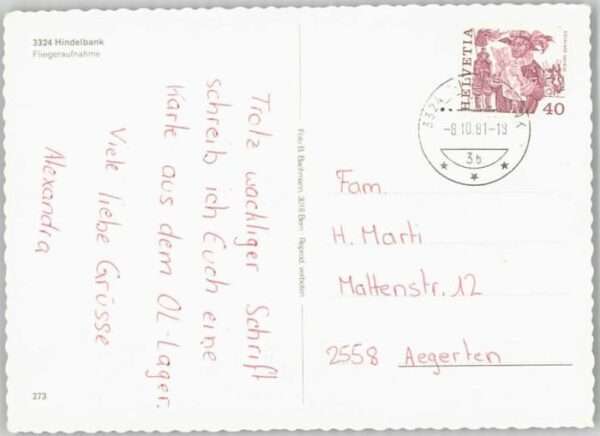 3324 Hindelbank
Fliegeraufnahme
Trotz wackliger Schrift
schreib ich Euch eine
Karte aus dem OL-Lager.
Viele liebe Grüsse
Alexandra
273
Foto B. Bachmann, 3018 Bern Reprod. verboten
HELVETIA
40
3324
-8.10.81-19
3b
Fam.
H. Marti
Mattenstr. 12
2558 Aegerten